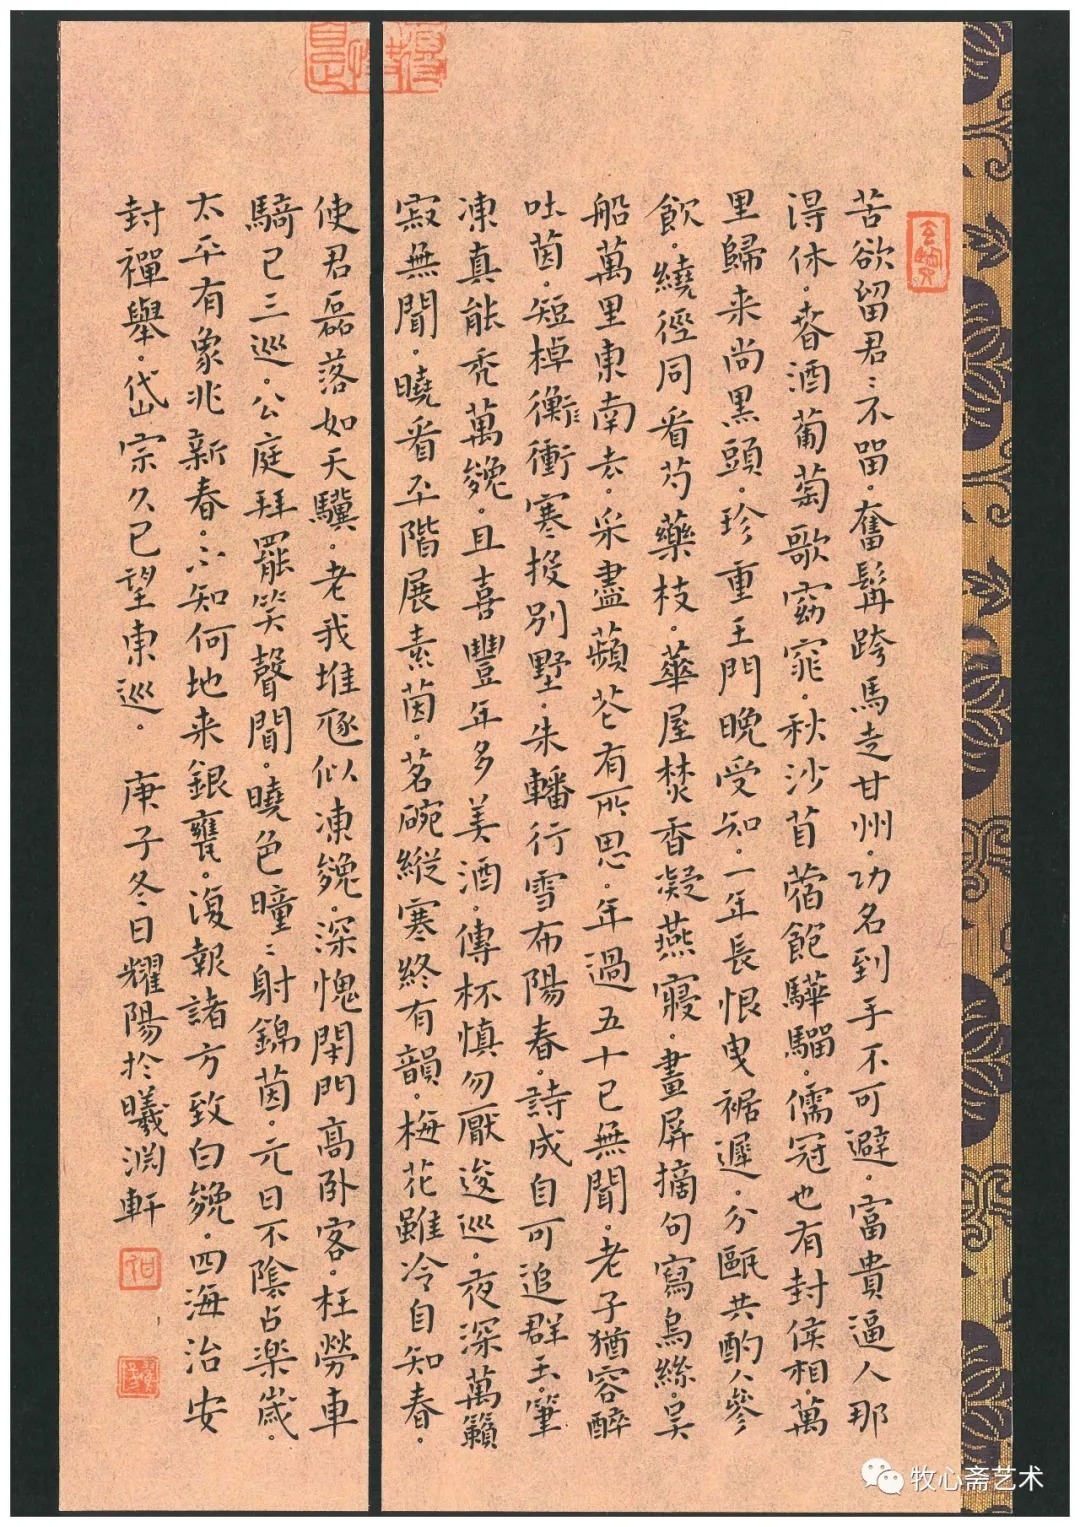 苦欲留君〻不留。奮髯跨馬走甘州。功名到手不可避。富貴逼人那
得休。春酒葡萄歌窈窕。秋沙苜蓿飽驊騮。儒冠也有封侯相。萬
里歸来尚黑頭。珍重王門晚受知。一年長恨曳裾遲。分甌共酌人參
飲。繞徑同看芍藥枝。華屋焚香凝燕寢。畫屏摘句寫烏絲。吴
船萬里東南去。采盡蘋花有所思。年過五十已無聞。老子猶容醉
吐茵。短棹衝寒投别墅。朱轓行雪布陽春。詩成自可追群玉。筆
凍真能秃萬㕙。且喜豐年多美酒。傳杯慎勿厭逡巡。夜深萬籟
寂無聞。曉看平階展素茵。茗碗縱寒終有韻。梅花雖冷自知春。
使君磊落如天驥。老我堆豗似凍㕙。深愧閉門高卧客。枉勞車
騎已三巡。公庭拜罷笑聲聞。曉色曈〻射錦茵。元日不陰占楽歲。
太平有象兆新春。不知何地来銀甕。復報諸方致白㕙。四海治安
封禪舉。岱宗久已望東巡。 庚子冬日耀陽於曦淵軒
牧心斋艺术